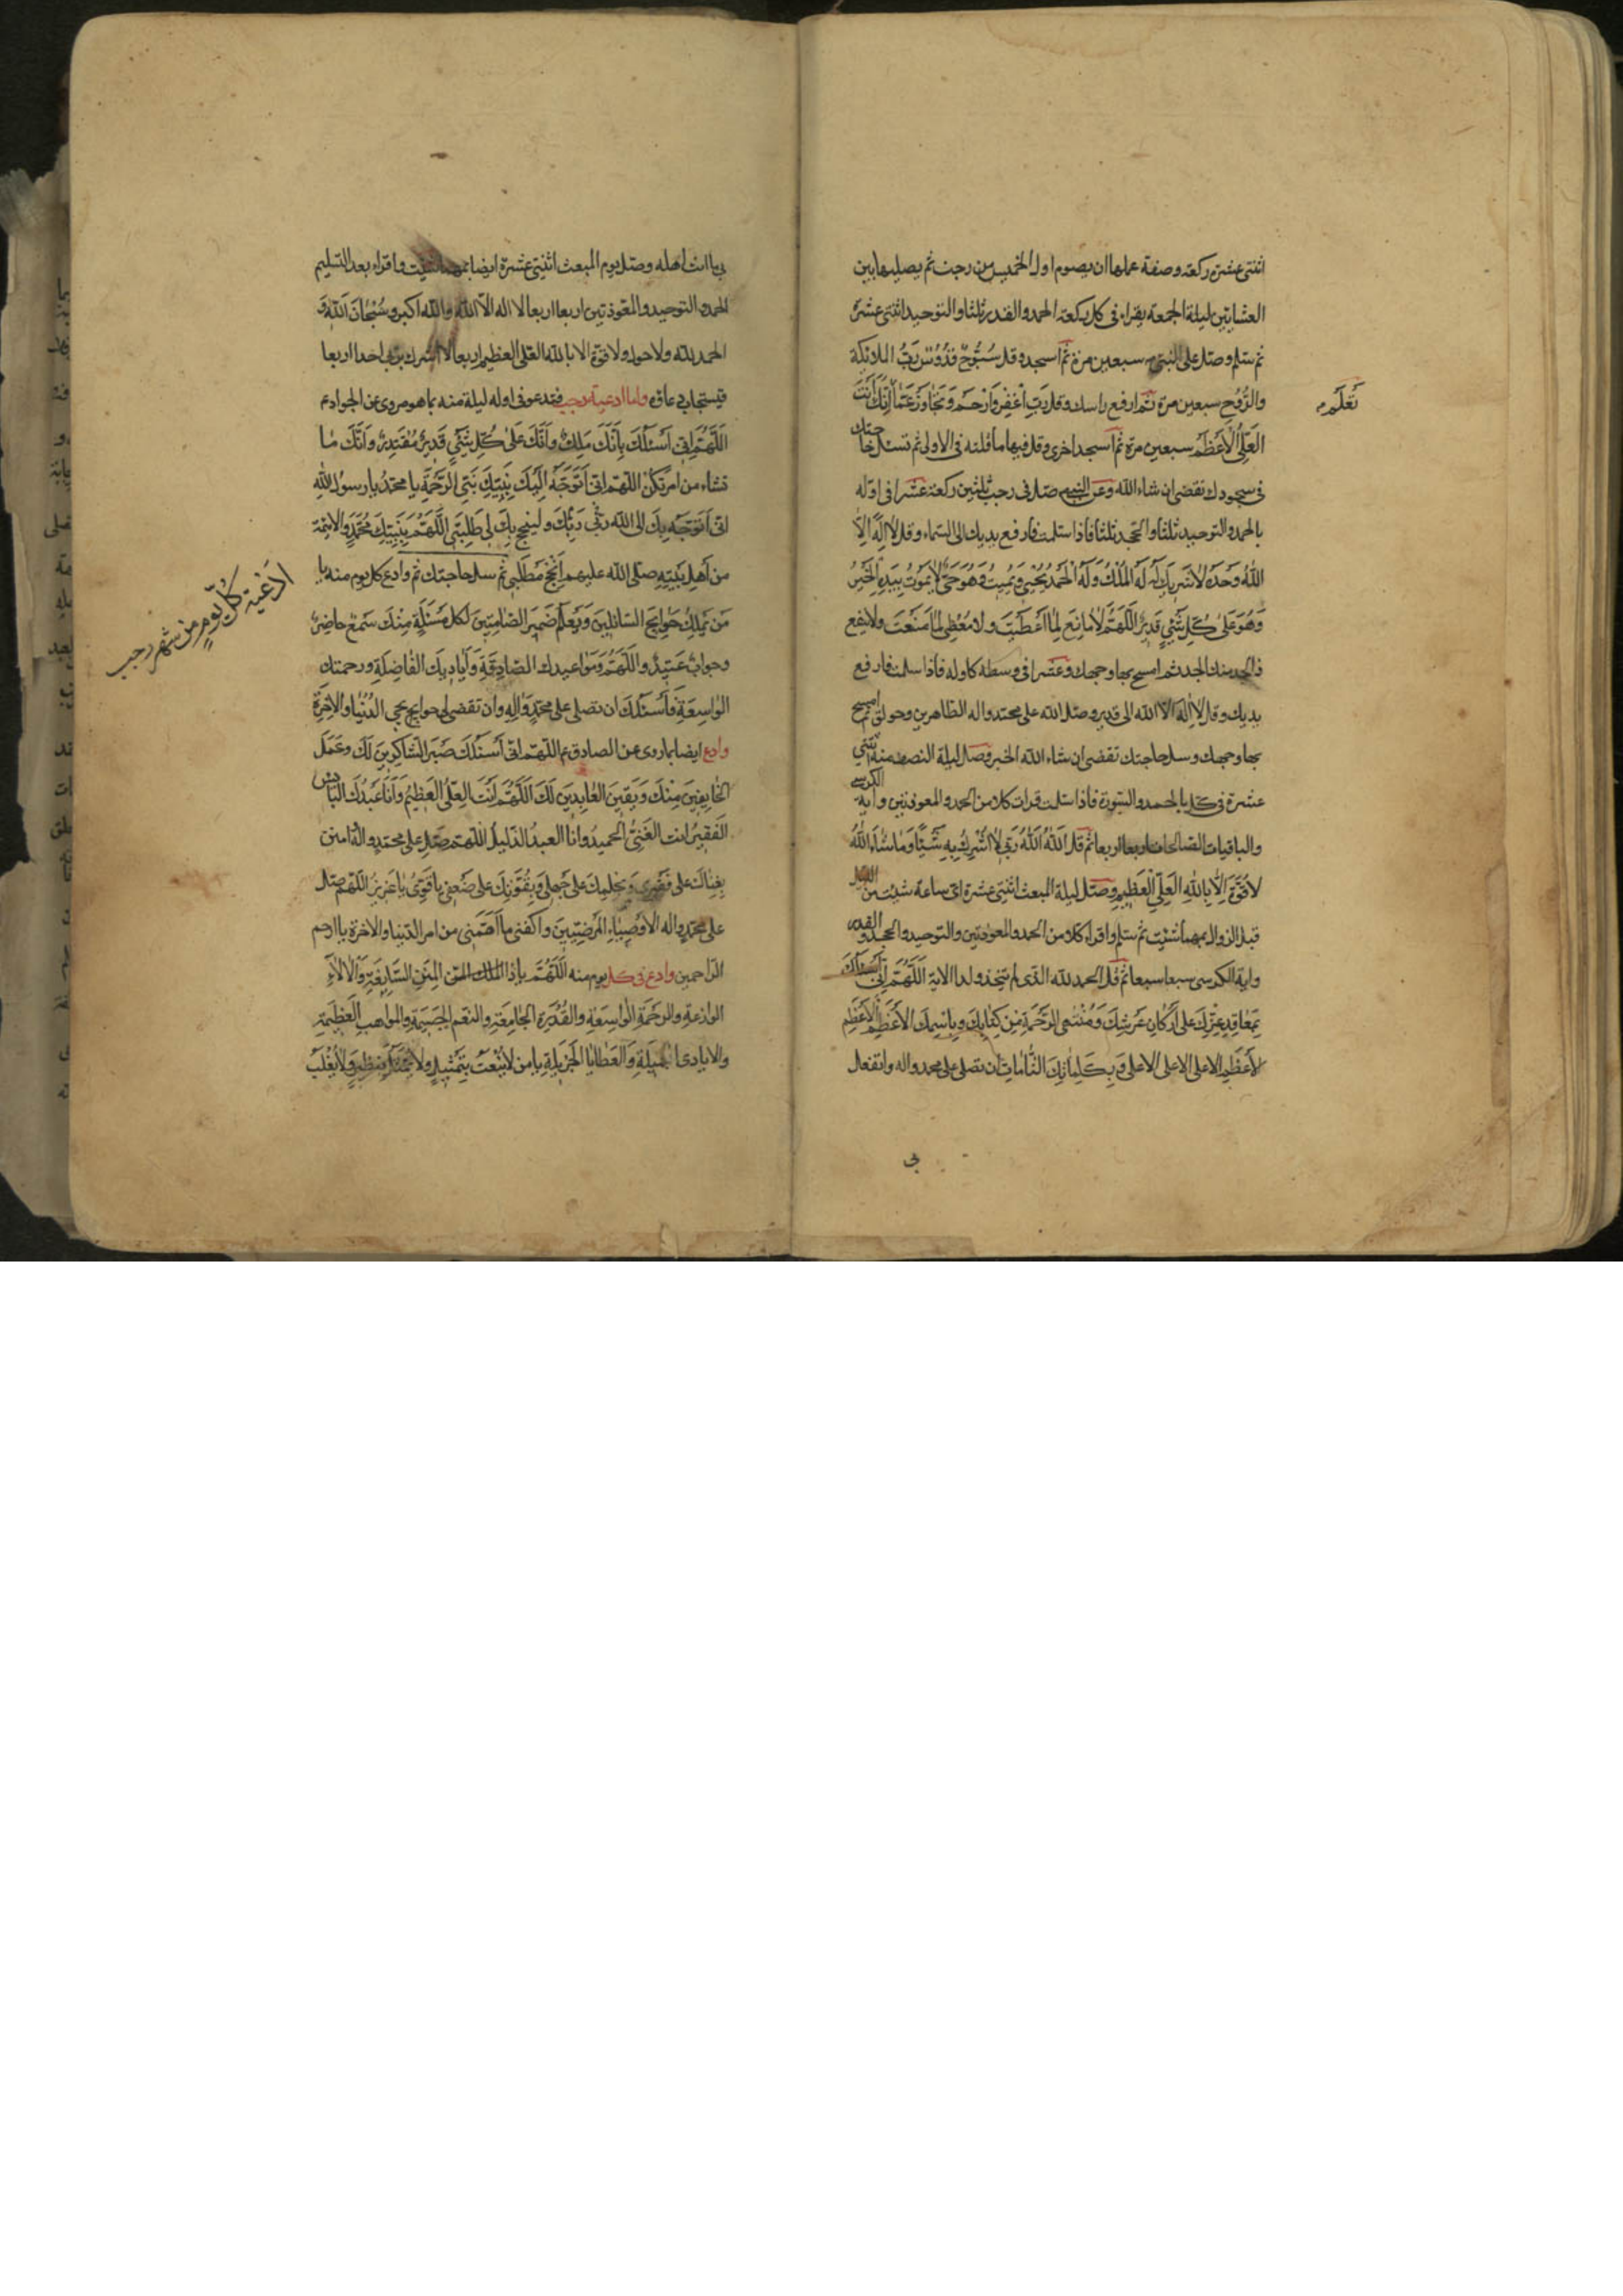 اثنتى عشرة ركعة وصفة عملها ان يصوم اول الخميس من رجب ثم يصليها بين
العشائين ليلة الجمعة يقراء فى كل ركعة الحمد والقدر ثلثا والتوحيد اثنتى عشرة
ثم سلم وصل على النبى سبعين مرة ثم اسجد وقل سُبُّوحٌ قُدُّوسٌ رَبُّ الملائكة
والرُّوحِ سبعين مرة ثم ارفع راسك وقل رَبِّ اغْفِرْ وَارْحَمْ وَتَجَاوَزْ عَمَّا اِنَّكَ اَنْتَ
تَعْلَمُ
العَلِىُّ الْاَعْظَمُ سبعين مرة ثم اسجد اخرى وقل فيها ما قلته فى الاولى ثم تسئل حاجتك
فى سجودك تقضى ان شاء الله وعن النبى صل فى رجب ثلثين ركعة عشرا فى اوله
بالحمد والتوحيد ثلثا والجحد ثلثا فاذا سلمت فارفع يديك الى السماء وقل لا اِلٰهَ اِلاَّ
اللّٰهُ وَحْدَهُ لاٰ شَرِيكَ لَهُ لَهُ المُلْكُ وَلَهُ الْحَمْدُ يُحْيِى وَيُمِيتُ وَهُوَ حَىٌّ لاٰ يَمُوتُ بِيَدِهِ الْخَيْرُ
وَهُوَ عَلىٰ كُلِّ شَىْءٍ قَدِيرٌ اَللّٰهُمَّ لاٰ مٰانِعَ لِمٰا اَعْطَيْتَ ولا مُعْطِىَ لِمٰا مَنَعْتَ ولا ينفع
ذا الجد منك الجد ثم امسح بها وجهك وعشرا فى وسطه كاوله فاذا سلمت فارفع
يديك وقل لا اِلٰهَ الا الله الى قدير وصلى الله على محمد واله الطاهرين وحولق ثم امسح
بها وجهك وسل حاجتك تقضى ان شاء الله الخبر وصل ليلة النصف منه اثنتى
عشرة فى كل بالحمد والسورة فاذا سلمت قرات كلا من الحمد والمعوذتين واية الكرسى
والباقيات الصالحات اربعا اربعا ثم قل اَللّٰهُ اَللّٰهُ رَبِّى لاٰ اُشْرِكُ بِهِ شَيْئًا وَمٰا شٰاءَ اللّٰهُ
لاٰ قُوَّةَ اِلاّٰ بِاللّٰهِ العَلِىِّ الْعَظِيمِ وصل ليلة المبعث اثنتى عشرة اى ساعة شئت من الليل
قبل الزوال بمهما شئت ثم سلم واقراء كلا من الحمد والمعوذتين والتوحيد والجحد والقدر
واية الكرسى سبعا سبعا ثم قل الحمد لله الذى لم يتخذ ولدا الاية اَللّٰهُمَّ اِنّى اَسْئَلُكَ
بِمَعٰاقِدِ عِزِّكَ عَلىٰ اَرْكٰانِ عَرْشِكَ وَمُنْتَهىَ الرَّحْمَةِ مِنْ كِتٰابِكَ وَبِاسْمِكَ الاَعْظَمِ الْاَعْظَمِ
الاَعْظَمِ الاعلى الاعلى الاعلى وَبِكَلِمٰاتِكَ التّٰامّٰاتِ ان تصلى على محمد واله وان تفعل
بى
بى ما انت اهله وصل يوم المبعث اثنتى عشرة ايضا بمهما شئت واقراء بعد التسليم
الحمد والتوحيد والمعوذتين اربعا اربعا لا اله الا اللّٰه واللّٰه اكبر وسُبْحٰانَ اللّٰهِ وَ
الحمد للّه ولا حول ولا قوة الا باللّه العلى العظيم اربعا لا اشرك بربى احدا اربعا
فيستجاب دعاؤه واما ادعية رجب فتدعو فى اوله ليلة منه بما هو مروى عن الجواد ع
اَللّٰهُمَّ اِنّى اَسْئَلُكَ بِاَنَّكَ مَلِكٌ وَاَنَّكَ عَلىٰ كُلِّ شَىْءٍ قَدِيرٌ مُقْتَدِرٌ وَاَنَّكَ مٰا
تشاء من امر يَكُنْ اللّٰهم انى اَتَوَجَّهُ اِلَيْكَ بِنَبِيِّكَ نَبِىِّ الرَّحْمَةِ يا محمدُ يا رسولَ اللّٰهِ
انى اَتَوَجَّهُ بِكَ الى اللّٰه ربّى ورَبِّكَ ولينجح بِكَ لى طَلِبَتى اَللّٰهُمَّ بِنَبِيِّكَ مُحَمَّدٍ والائمة
من اَهْلِ بَيْتِهِ صلى اللّه عليهم اَنْجِحْ مَطْلَبى ثم سل حاجتك ثم وادع كل يوم منه يا
ادعية كُلِّ يَوْمٍ من شهر رجب
مَنْ يَمْلِكُ حَوٰايِجَ السّائِلينَ وَيَعْلَمُ ضَمِيرَ الصّٰامِتِينَ لكل مَسْئَلَةٍ مِنْكَ سَمْعٌ حاضِرٌ
وجوابٌ عَتِيدٌ واَللّٰهُمَّ وَمَوٰاعِيدك الصّادِقَةِ وَاَيٰادِيكَ الفٰاضِلَةِ ورحمتك
الوٰاسِعَةِ فَاَسْئَلُكَ ان تصلى على محمدٍ وَاٰلِهِ وان تقضى لى حوايجى الدُّنْيٰا والْاٰخِرَةِ
وادع ايضا بما روى عن الصادق ع اللّٰهم انى اَسْئَلُكَ صَبْرَ الشاكِرِينَ لَكَ وعَمَلَ
الخٰائِفِينَ مِنْكَ وَيَقِينَ العٰابِدِينَ لَكَ اَللّٰهُمَّ اَنْتَ العَلِىُّ العَظِيمُ وَاَنَا عَبْدُكَ البٰائِسُ
الفَقِيرُ انت الغَنِىُّ الحميدُ وانا العبدُ الذّليلُ اللّٰهم صَلِّ على محمدٍ واله وامنن
بِغِنٰاكَ على فَقْرِى وَبِحِلْمِكَ على جَهْلِى وَبِقُوَّتِكَ على ضَعْفِى يا قَوِىُّ يٰا عَزِيزُ اللّٰهم صل
على محمدٍ واله الاَوْصِيٰاءِ المَرْضِيّينَ واكفنى ما اَهَمَّنِى من امر الدنيا والاخرة يا ارحم
الراحمين وادع فى كل يوم منه اَللّٰهُمَّ يا ذا المِنَنِ السّٰابِغَةِ وَالْاٰلاٰءِ
الوازعةِ والرحْمَةِ الوٰاسِعَةِ والقُدْرَةِ الجٰامِعَةِ والنعَمِ الجَسِيمَةِ والمواهبِ العَظِيمَةِ
والايادى الجميلَةِ وَالعَطٰايٰا الجَزِيلَةِ يا من لاٰ يُنْعَتُ بِتَمْثِيلٍ ولاٰ يُمَثَّلُ بِنظيرٍ وَلاٰ يُغْلَبُ